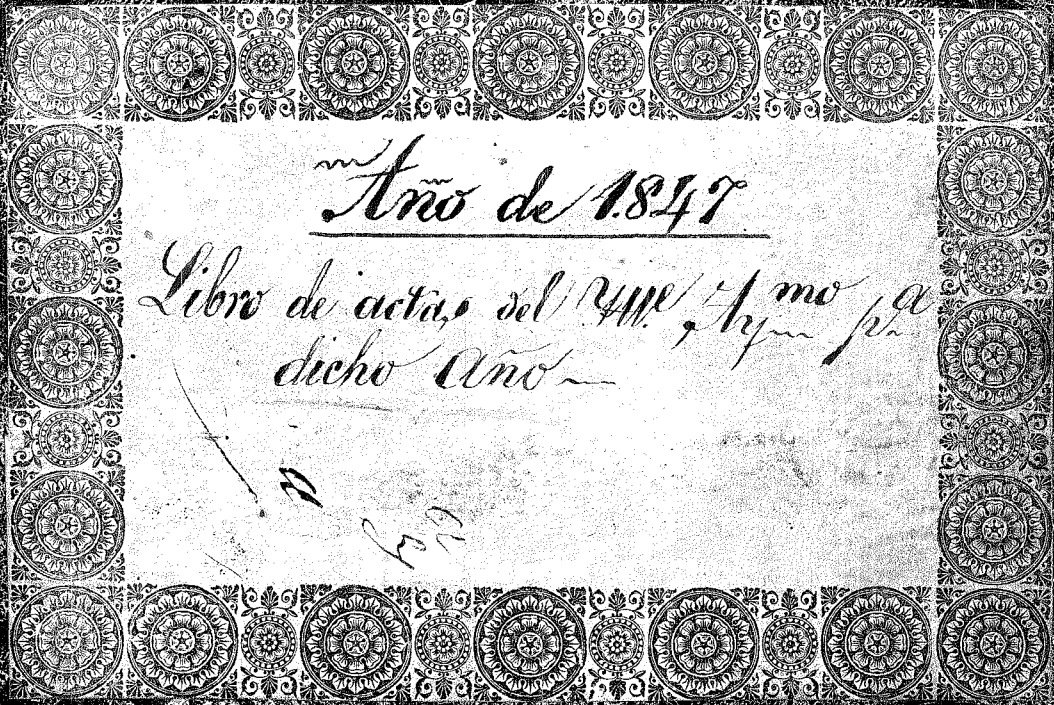 Año de 1847
Libro de actas del Ylle Aymo pa
dicho Año